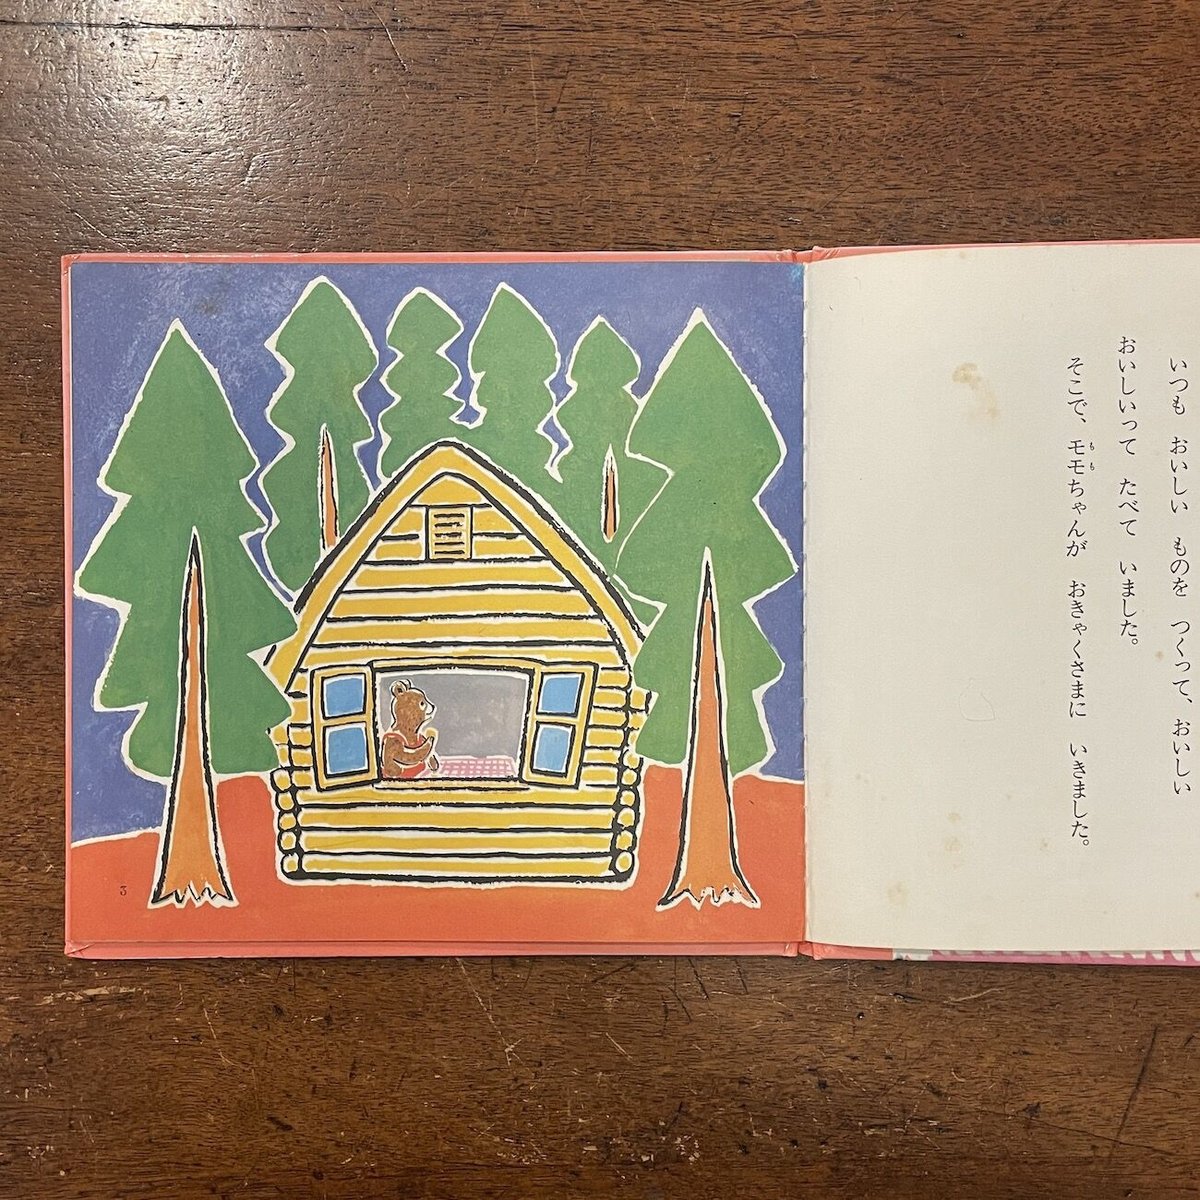 いつも おいしい ものを つくって、おいしい
おいしいって たべて いました。
そこで、モモちゃんが おきゃくさまに いきました。
もも
3